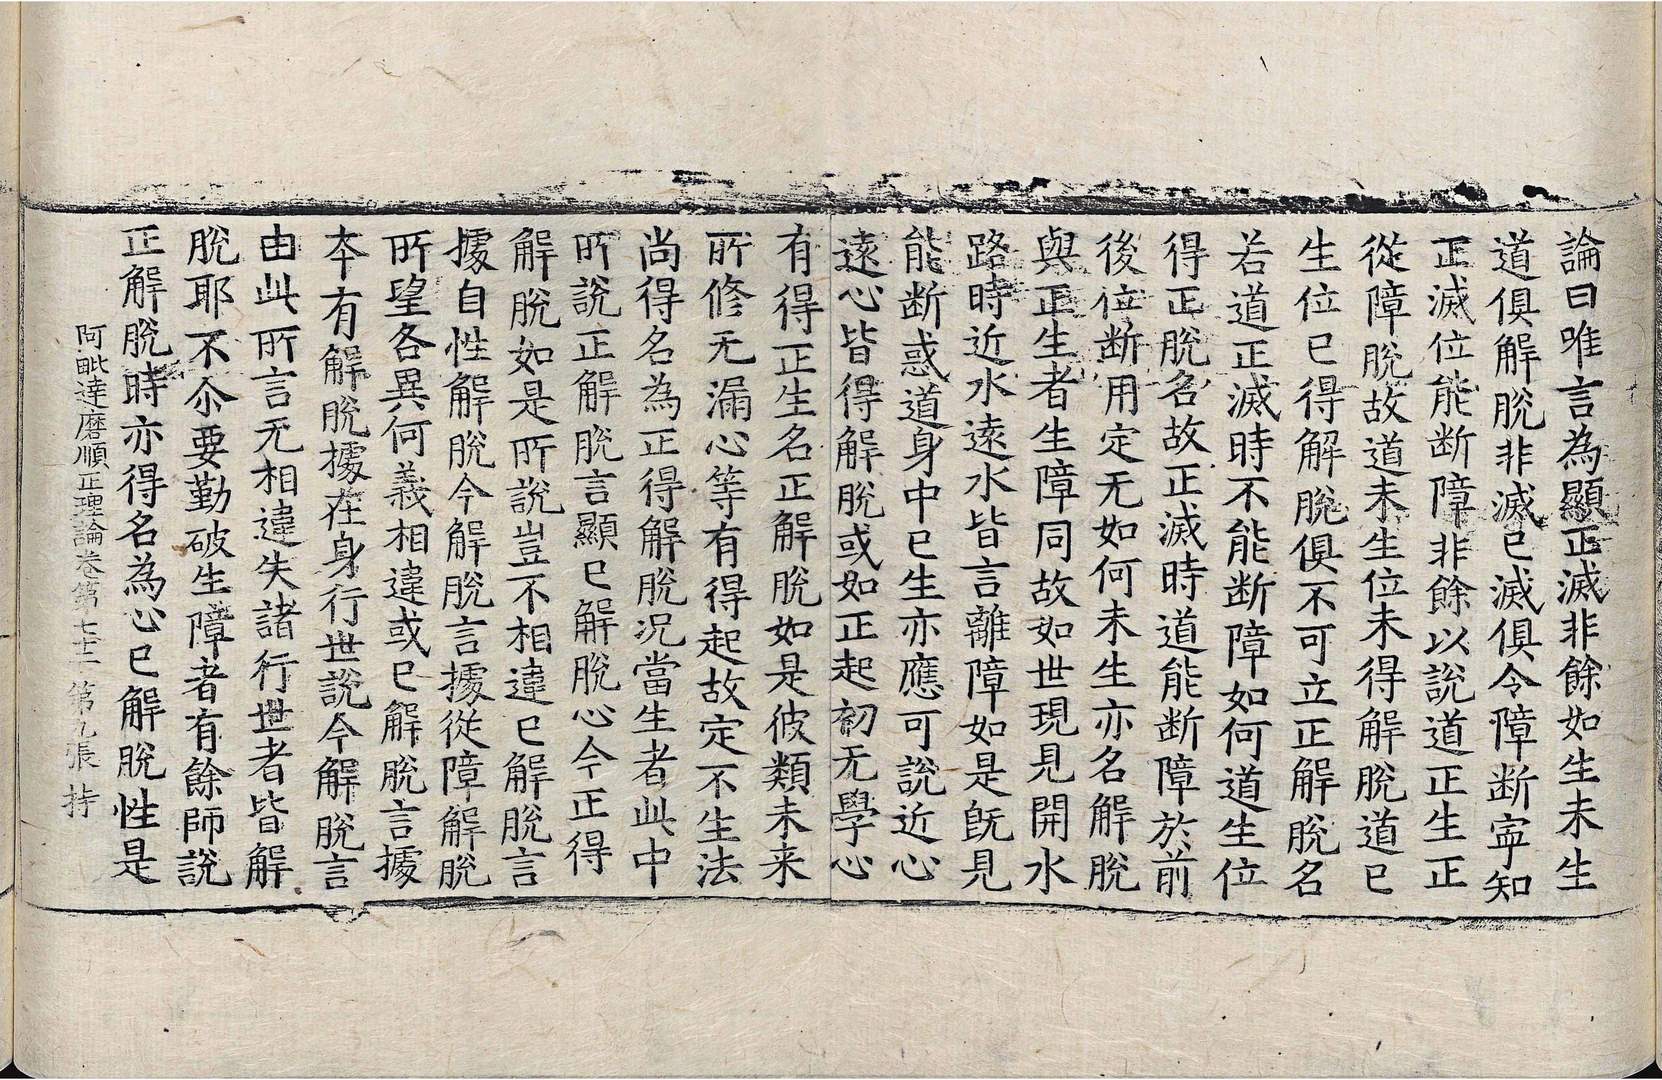 論曰唯言為顯正滅非餘如生未生
道俱解脫非滅已滅俱令障斷寧知
正滅位能断障非餘以說道正生正
從障脫故道未生位未得解脫道已
生位已得解脫俱不可立正解脫名
若道正滅時不能断障如何道生位
得正脫名故正滅時道能断障於前
後位断用定无如何未生亦名解脫
與正生者生障同故如世現見開水
路時近水遠水皆言離障如是旣見
能断惑道身中已生亦應可說近心
遠心皆得解脫或如正起初无學心
有得正生名正解脫如是彼類未来
所修无漏心等有得起故定不生法
尚得名為正得解脫況當生者此中
所說正解脫言顯已解脫心今正得
解脫如是所說豈不相違已解脫言
據自性解脫今解脫言據從障解脫
所望各異何義相違或已解脫言據
本有解脫據在身行世說今解脫言
由此所言无相違失諸行世者皆解
脫耶不尒要勤破生障者有餘師說
正解脫時亦得名為心已解脫性是
阿毗達磨順正理論卷第七十二 第九張 持